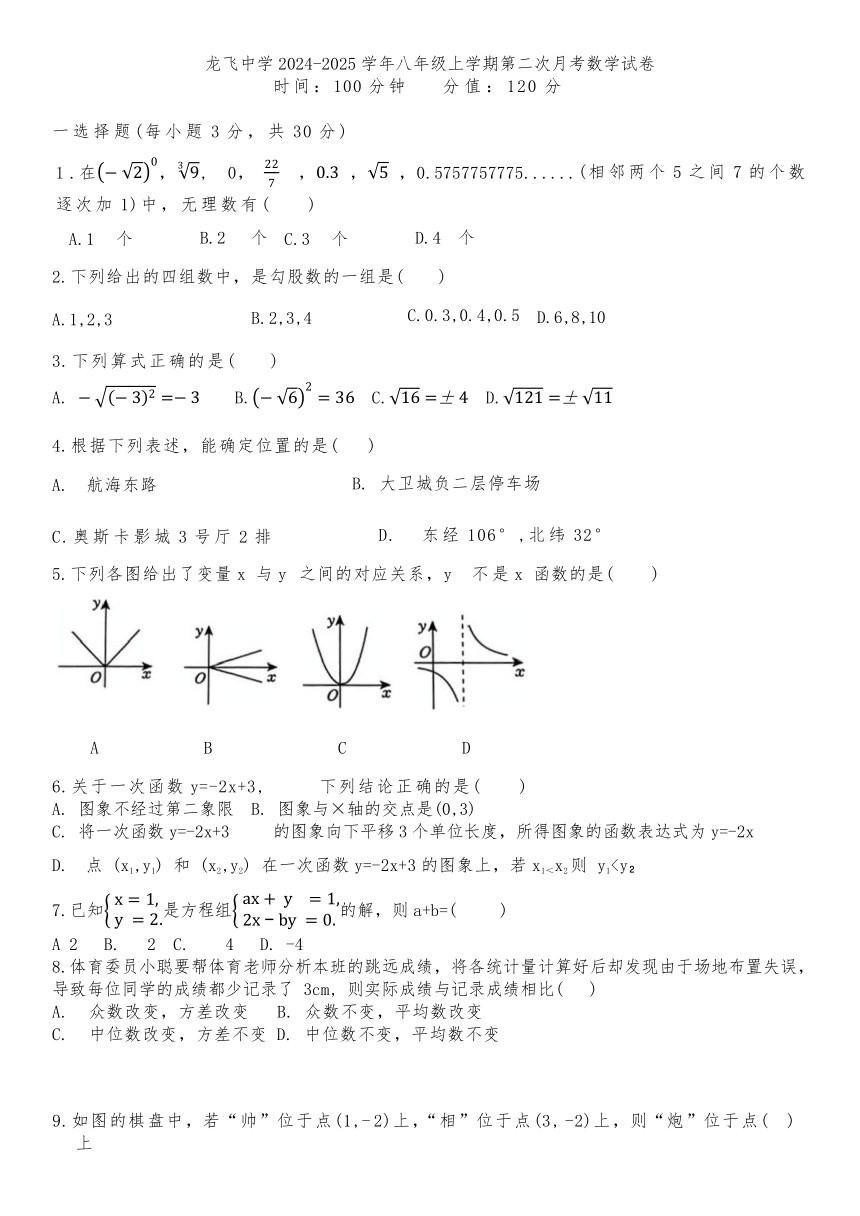 龙飞中学2024-2025学年八年级上学期第二次月考数学试卷
时间：100分钟 分值：120分
一选择题(每小题 3 分，共 30 分)
1.在(−√2)⁰，∛9， 0， 22/7 ，0.3 ，√5 ，0.5757757775......(相邻两个 5 之间 7 的个数
逐次加 1)中，无理数有( )
A.1 个 B.2 个 C.3 个 D.4 个
2.下列给出的四组数中，是勾股数的一组是( )
A.1,2,3 B.2,3,4 C.0.3,0.4,0.5 D.6,8,10
3.下列算式正确的是( )
A. −√(−3)² =−3 B.(−√6)² = 36 C.√16 =± 4 D.√121 =± √11
4.根据下列表述，能确定位置的是( )
A. 航海东路 B. 大卫城负二层停车场
C.奥斯卡影城 3 号厅 2 排 D. 东经 106° ,北纬 32°
5.下列各图给出了变量x 与y 之间的对应关系，y 不是x 函数的是( )
y y y y
O x O x O x O x
A B C D
6.关于一次函数 y=-2x+3, 下列结论正确的是( )
A. 图象不经过第二象限 B. 图象与×轴的交点是(0,3)
C. 将一次函数y=-2x+3 的图象向下平移3个单位长度，所得图象的函数表达式为y=-2x
D. 点 (x₁,y₁) 和 (x₂,y₂) 在一次函数y=-2x+3的图象上，若x₁<x₂则 y₁<y?
7.已知{x = 1, y = 2.是方程组{ax + y = 1, 2x − by = 0.的解，则a+b=( )
A 2 B. 2 C. 4 D. -4
8.体育委员小聪要帮体育老师分析本班的跳远成绩，将各统计量计算好后却发现由于场地布置失误，
导致每位同学的成绩都少记录了 3cm，则实际成绩与记录成绩相比( )
A. 众数改变，方差改变 B. 众数不变，平均数改变
C. 中位数改变，方差不变 D. 中位数不变，平均数不变
9.如图的棋盘中，若“帅”位于点(1,-2)上，“相”位于点(3,-2)上，则“炮”位于点( )
上